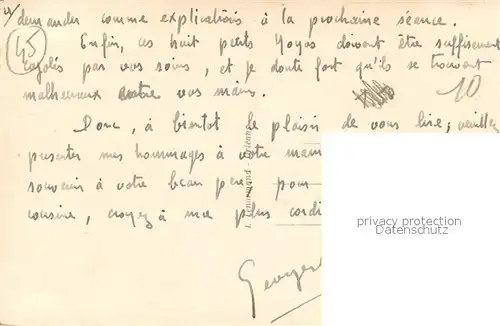 demander comme explications à la prochaine séance.
45
Enfin, ces huit petits Yoyos doivent être suffisament
cajolés par vos soins, et je doute fort qu'ils se trouvent
malheureux entre vos mains.
10
Donc, à bientot le plaisir de vous lire; veuillez
présenter mes hommages à votre mam
souvenir à votre beau père pour
cousine, croyez à ma plus cordi
privacy protection
Datenschutz
Georges